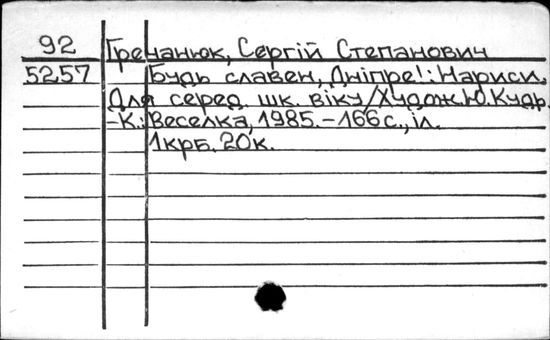 92 Гречанюк, Сергій Степанович
5257 Будь славен, Дніпре!: Нариси.
Для серед. шк. віку/Худож. Ю. Кудр.
-К.: Веселка, 1985. - 166 с., іл.
1 крб. 20 к.